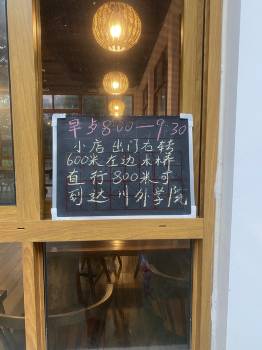 早点8:00—9:30
小店出门右转
600米左边木桥
直行800米可
到达川外学院